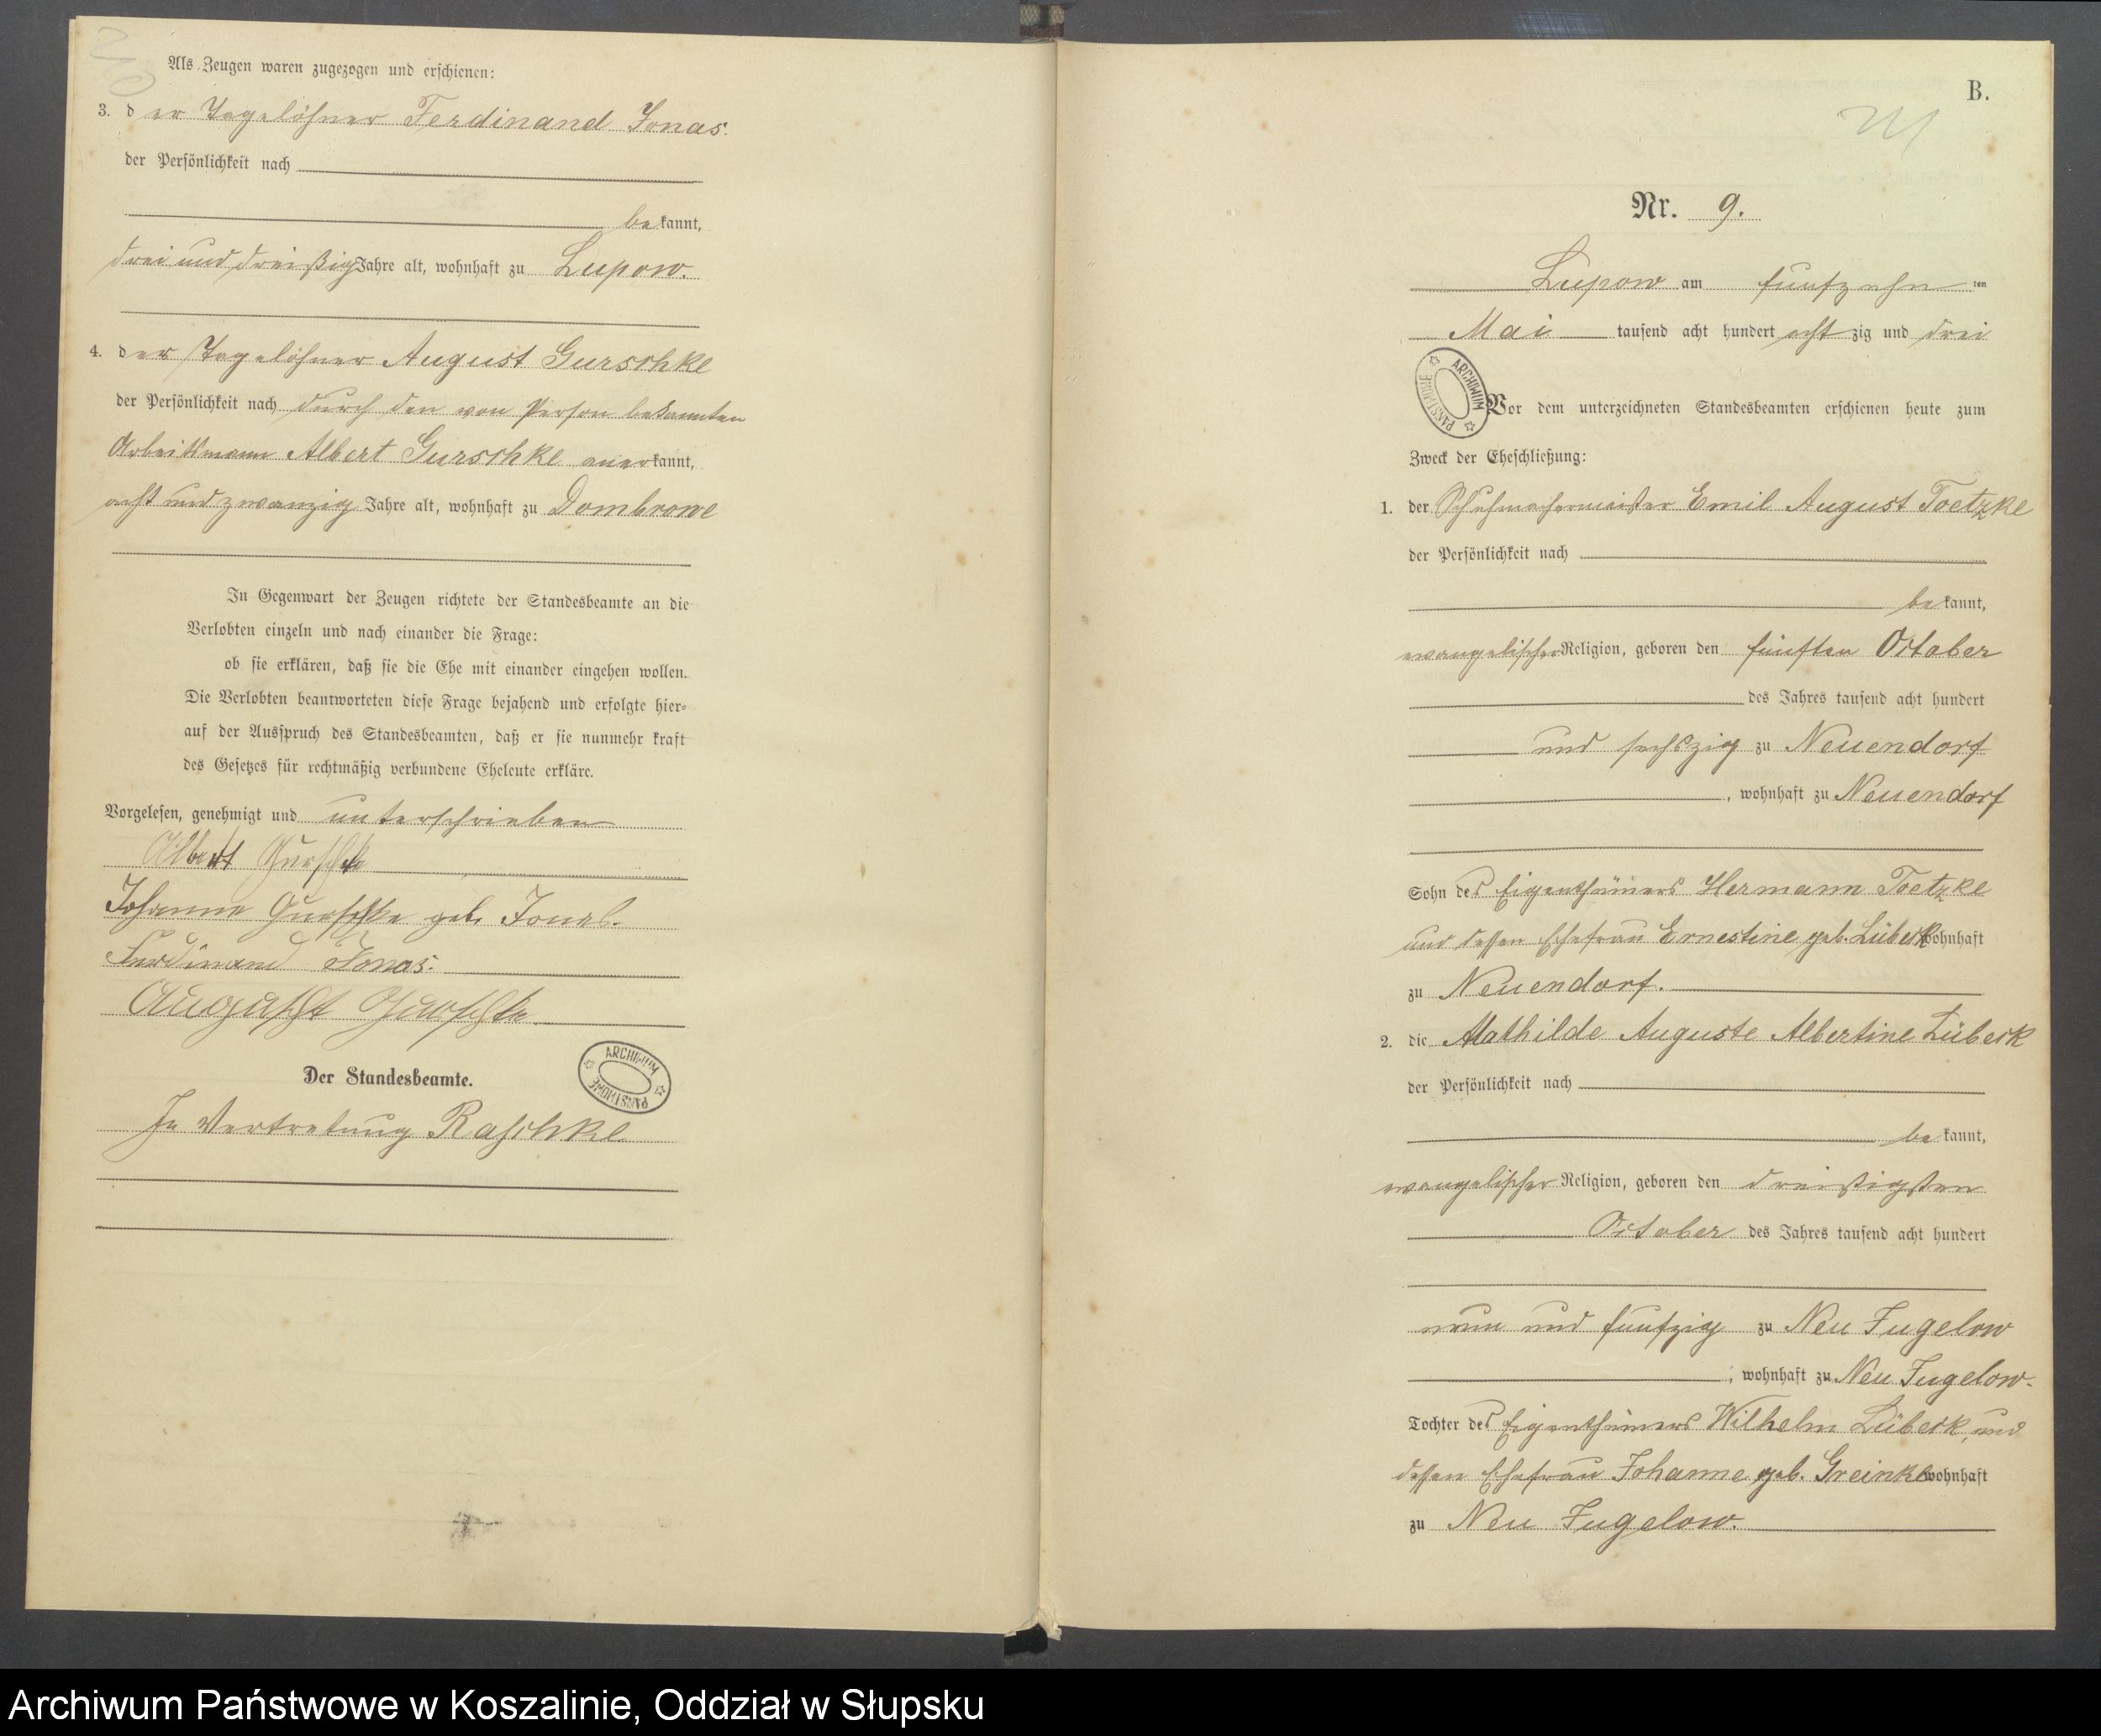 Als Zeugen waren zugezogen und erschienen:
3. der Tagelöhner Ferdinand Jonas.
der Persönlichkeit nach
bekannt,
drei und dreißig Jahre alt, wohnhaft zu Lupow.
4. der Tagelöhner August Gurschke
der Persönlichkeit nach durch den von Person bekannten
Arbeitsmann Albert Gurschke anerkannt,
acht und zwanzig Jahre alt, wohnhaft zu Dombrowe
In Gegenwart der Zeugen richtete der Standesbeamte an die
Verlobten einzeln und nach einander die Frage:
ob sie erklären, daß sie die Ehe mit einander eingehen wollen.
Die Verlobten beantworteten diese Frage bejahend und erfolgte hier-
auf der Ausspruch des Standesbeamten, daß er sie nunmehr kraft
des Gesetzes für rechtmäßig verbundene Eheleute erkläre.
Vorgelesen, genehmigt und unterschrieben
Albert Gurschke
Johanne Gurschke geb. Jonas.
Ferdinand Jonas.
August Gurschke
Der Standesbeamte.
ARCHIWUM PAŃSTWOWE
In Vertretung Raschke
B.
Nr. 9.
Lupow am fünfzehnten
Mai tausend acht hundert achtzig und drei
ARCHIWUM PAŃSTWOWE
Vor dem unterzeichneten Standesbeamten erschienen heute zum
Zweck der Eheschließung:
1. der Schuhmachermeister Emil August Toetzke
der Persönlichkeit nach
bekannt,
evangelischer Religion, geboren den fünften October
des Jahres tausend acht hundert
und sechszig zu Neuendorf
, wohnhaft zu Neuendorf
Sohn des Eigenthümers Hermann Toetzke
und dessen Ehefrau Ernestine geb. Lübeck wohnhaft
zu Neuendorf.
2. die Mathilde Auguste Albertine Lübeck
der Persönlichkeit nach
bekannt,
evangelischer Religion, geboren den dreißigsten
October des Jahres tausend acht hundert
neun und fünfzig zu Neu Jugelow
, wohnhaft zu Neu Jugelow.
Tochter des Eigenthümers Wilhelm Lübeck, und
dessen Ehefrau Johanne geb. Greinke wohnhaft
zu Neu Jugelow.
Archiwum Państwowe w Koszalinie, Oddział w Słupsku